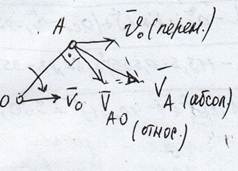 A
v̄₀ (перем.)
O
V̄₀
V̄ₐ₀
(относ.)
V̄ₐ (абсол)